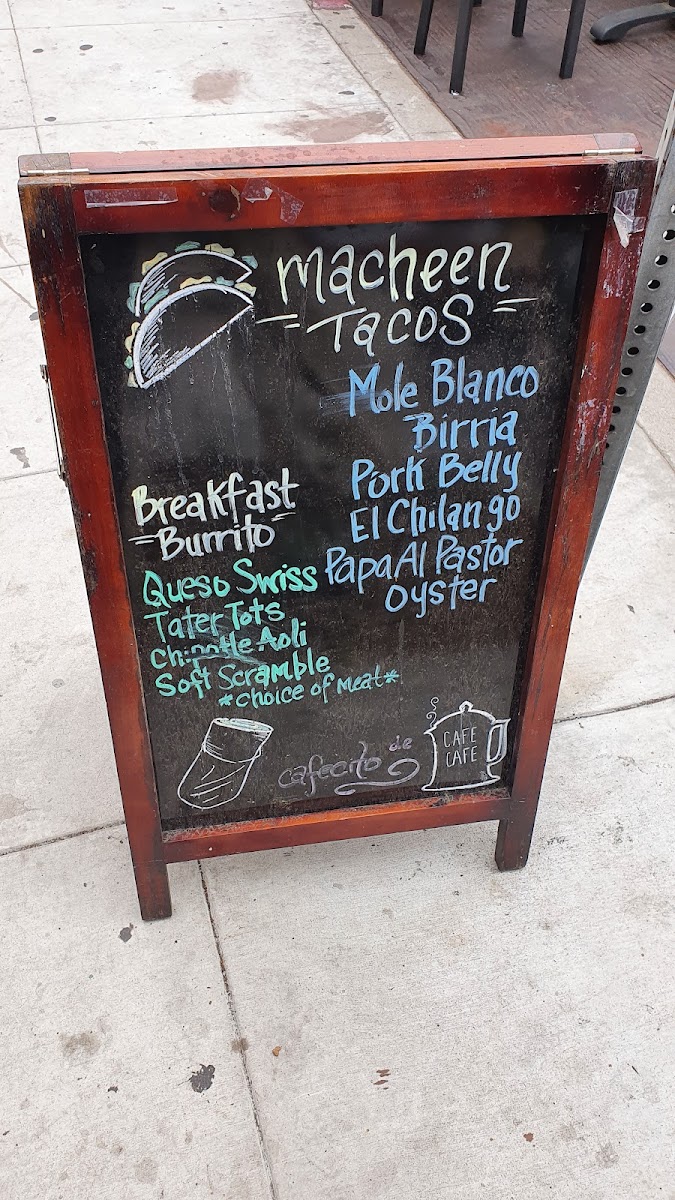 Macheen
Tacos
Mole Blanco
Birria
Pork Belly
El Chilango
Papa Al Pastor
Oyster
Breakfast
Burrito
Queso Swiss
Tater Tots
Chipotle Aoli
Soft Scramble
*choice of meat*
cafecito de
CAFE
CAFE